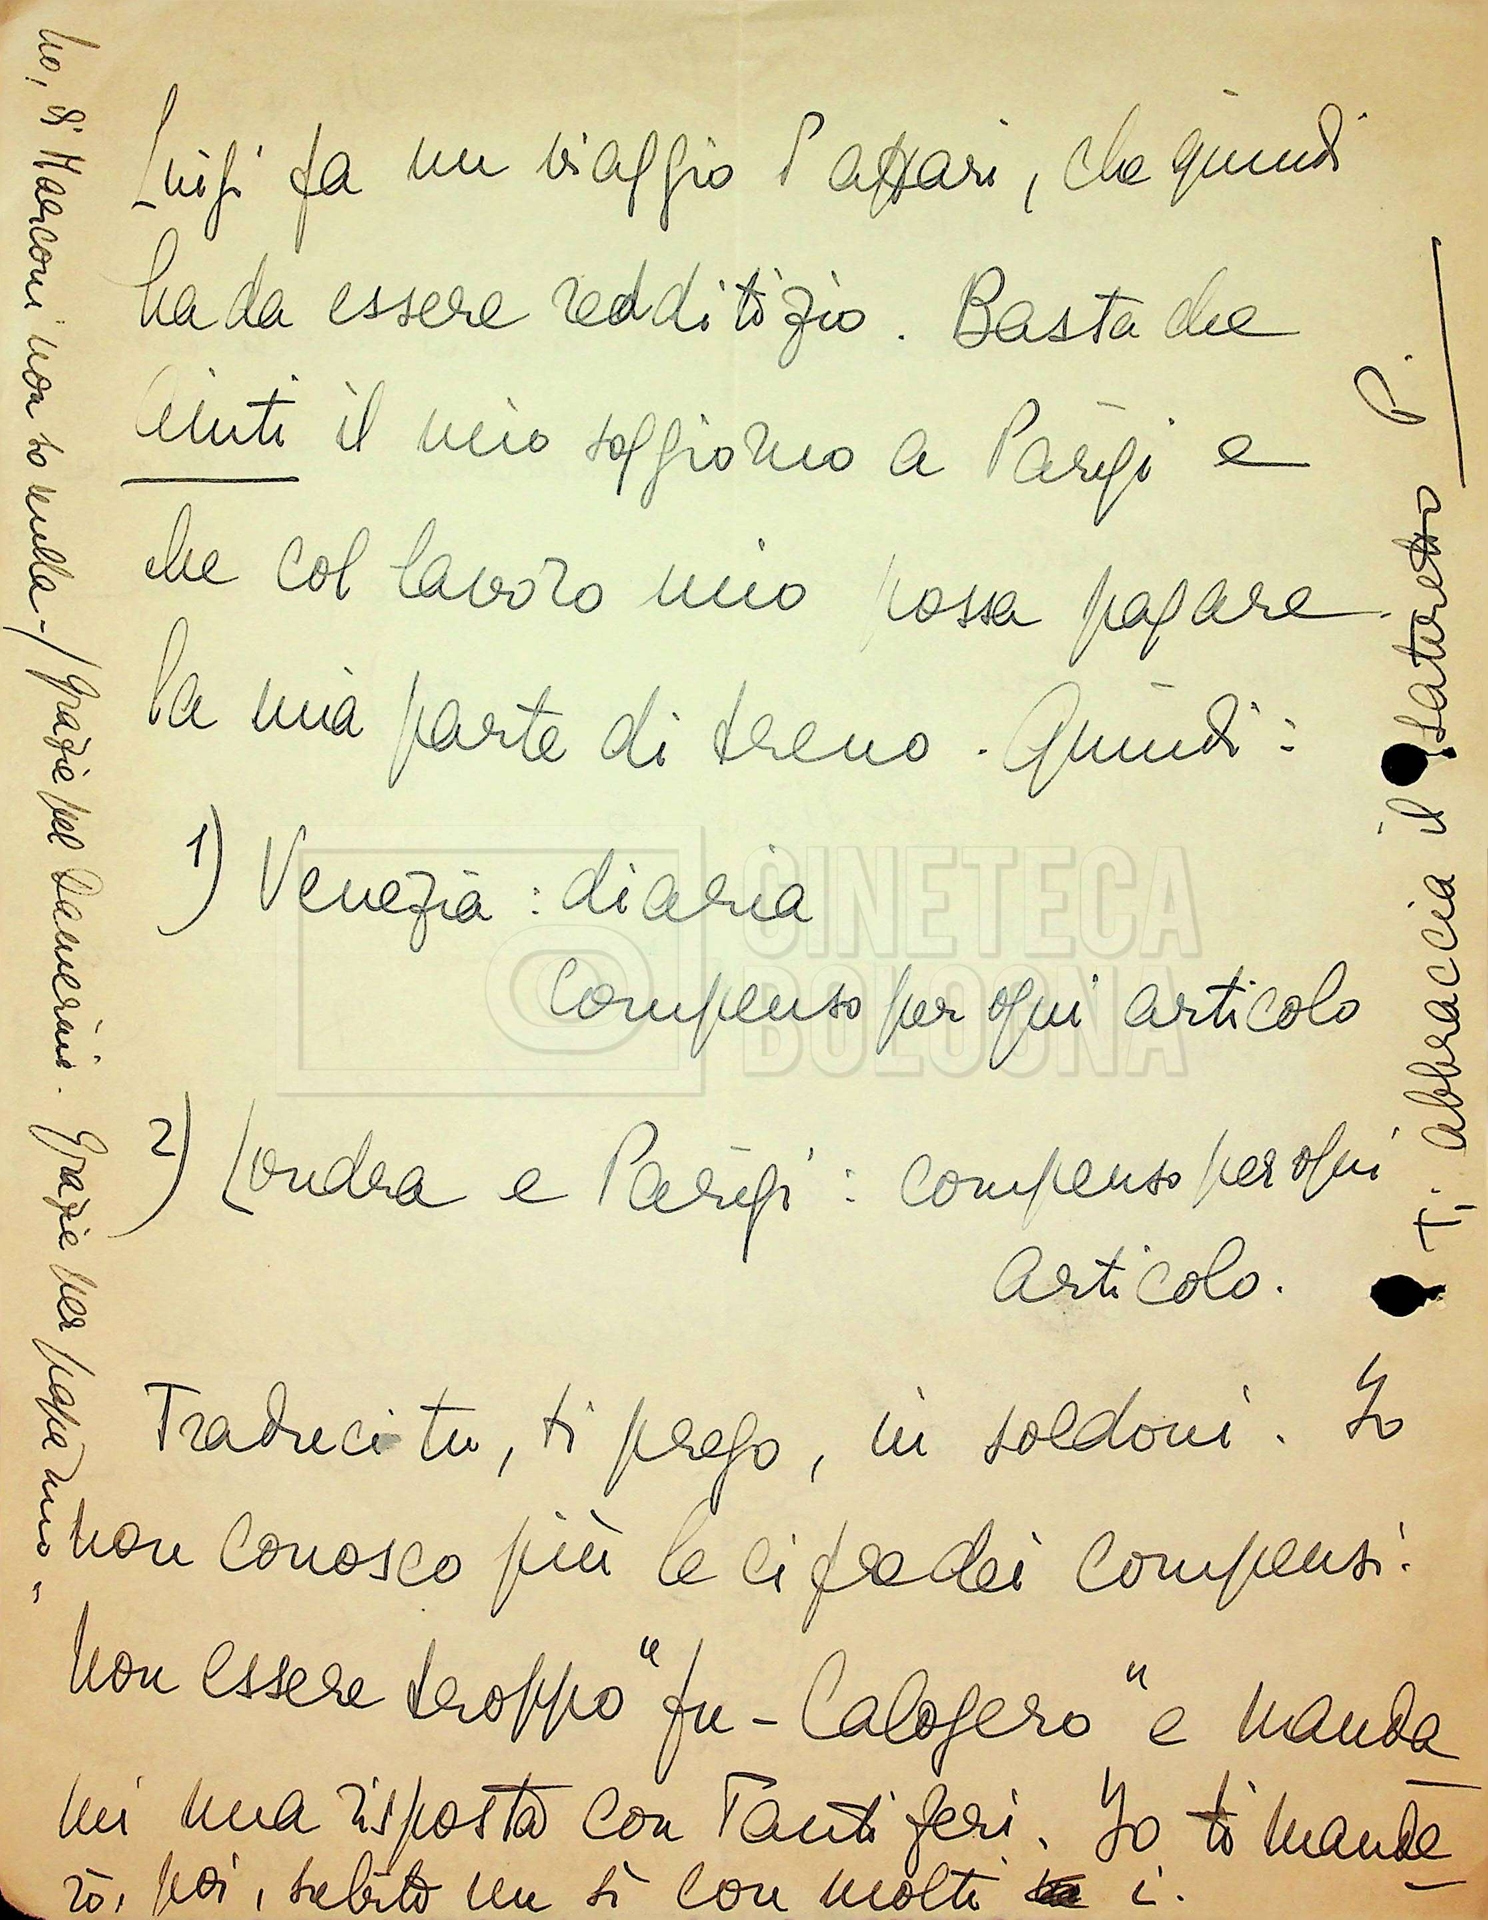 Luigi fa un viaggio d'affari, che quindi
ha da essere redditizio. Basta che
aiuti il mio soggiorno a Parigi e
che col lavoro mio possa pagare
la mia parte di treno. Quindi:
1) Venezia: diaria
compenso per ogni articolo
2) Londra e Parigi: compenso per ogni
articolo.
Traduci tu, ti prego, in soldoni. Io
non conosco più le cifre dei compensi.
Non essere troppo "fu-Calogero" e manda
mi una risposta con Tanti zeri. Io ti mande
rò, poi, subito un sì con molti i.
T. abbraccia il
P.
no, di Marconi non so nulla-/Grazie pel Damerini. Grazie per papà mio
CINETECA
BOLOGNA